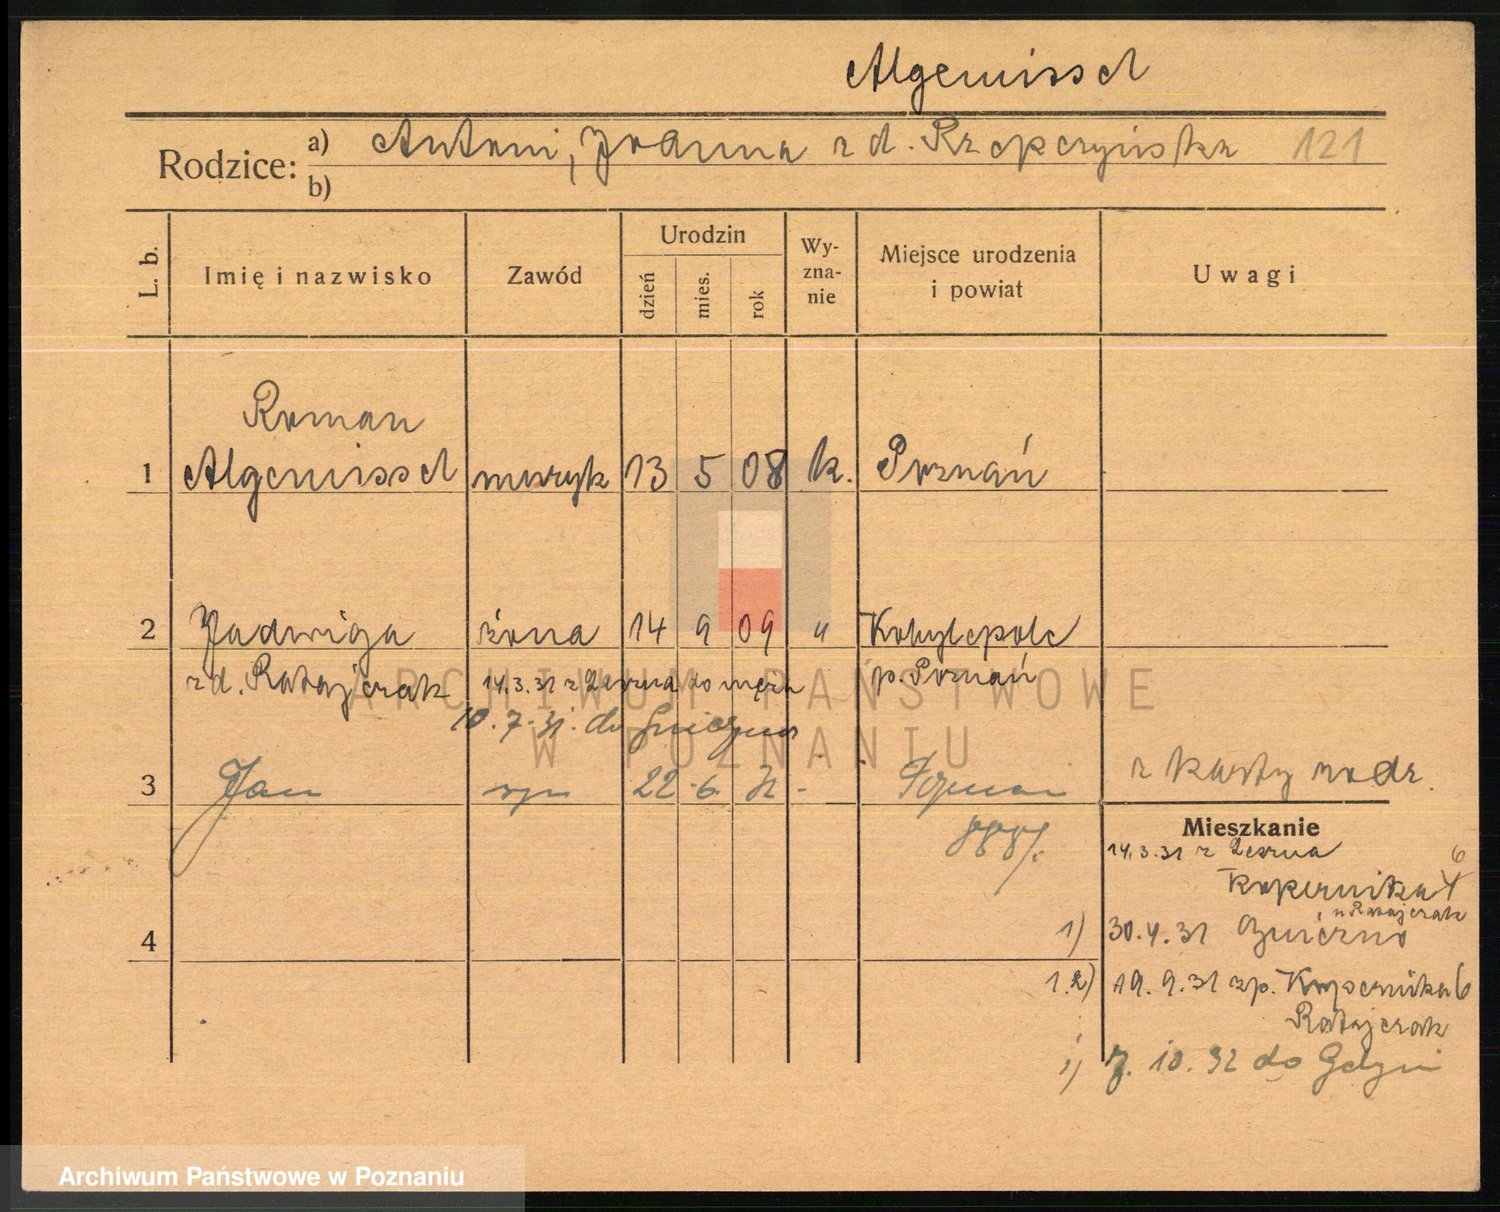 Algemissel
Rodzice: a) Antoni, Joanna z d. Rzepczyńska 121
b)
L. b. Imię i nazwisko Zawód Urodzin dzień mies. rok Wy-zna-nie Miejsce urodzenia i powiat Uwagi
Roman
1 Algemissel muzyk 13 5 08 k. Poznań
2 Jadwiga żona 14 9 09 " Kobylepole
z d. Ratajczak 14.3.31 z Leszna do męża p. Poznań
10.7.31. do Gniezna
3 Jan syn 22.6. 31 - Poznań
z karty rodz.
Mieszkanie
14.3.31 z Leszna 6
Kopernika 4
u Ratajczak
4 1) 30.4.31 Gniezno
1.2) 19.9.31 zp. Kopernika 6
Ratajczak
1) 7.10.32 do Gdyni
ARCHIWUM PAŃSTWOWE
W POZNANIU
Archiwum Państwowe w Poznaniu